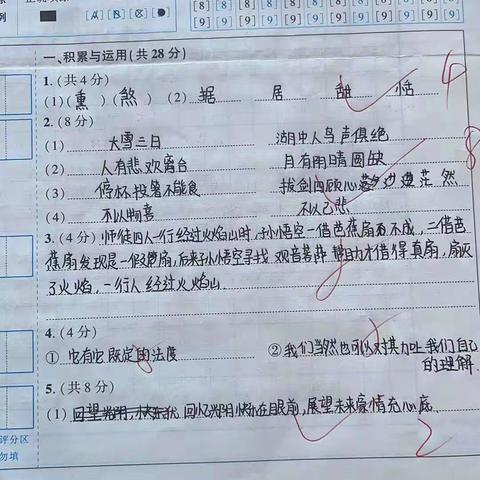 例
[A] [B] [C] [●]
[8] [8] [8] [8] [8] [8] [8] [8] [8]
[9] [9] [9] [9] [9] [9] [9] [9] [9]
一、积累与运用(共 28 分)
1. (共 4 分)
(1) (熏) (煞) (2) 据 居 甜 恬
4
2. (8 分)
8
(1) 大雪三日 湖中人鸟声俱绝
(2) 人有悲欢离合 月有阴晴圆缺
(3) 停杯投箸不能食 拔剑四顾心茫然
(4) 不以物喜 不以己悲
3. (4 分) 师徒四人一行经过火焰山时,孙悟空一借芭蕉扇不成,二借芭
蕉扇发现是一假扇,后来孙悟空寻找 观音菩萨 帮助才借得真扇,扇灭
了火焰,一行人经过火焰山.
4. (4 分)
① 它有它既定的法度 ② 我们当然也可以对其加上我们自己
的理解.
5. (共 8 分)
(1) 回忆光阴快乐在眼前,展望未来豪情充心底.
2
评分区
勿填